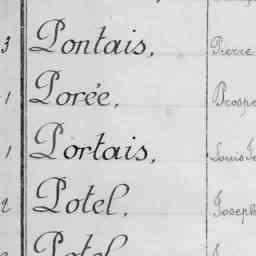 3 Pontais, Pierre
1 Porée, Prosp
1 Portais, Louis
2 Potel, Joseph
Potel